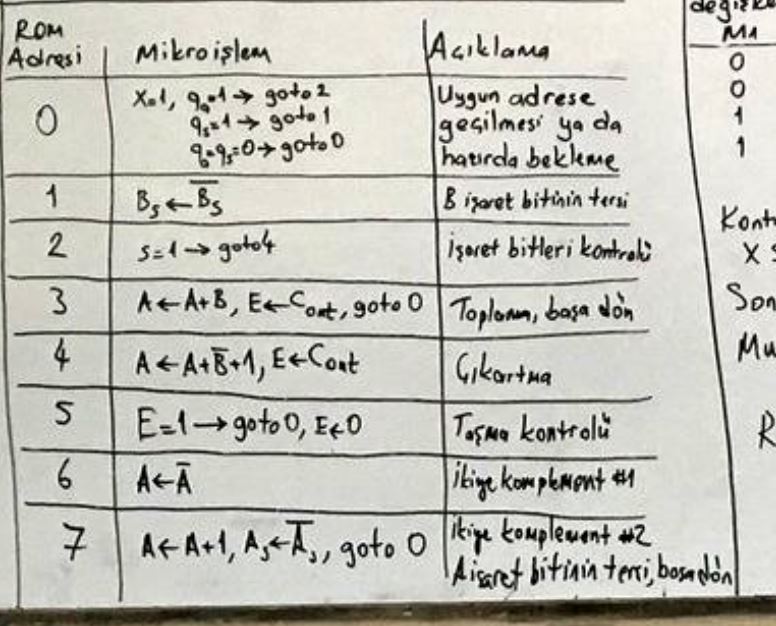 ROM
Adresi
Mikroişlem
Açıklama
0
X=1, qa=1 → goto 2
qs=1 → goto 1
qa=qs=0 → goto 0
Uygun adrese
geçilmesi ya da
hatırda bekleme
1
Bs ← B̅s̅
B işaret bitinin tersi
2
s=1 → goto 4
işaret bitleri kontrolü
3
A ← A+B, E ← Cout, goto 0
Toplama, başa dön
4
A ← A+B̅+1, E ← Cout
Çıkartma
5
E=1 → goto 0, E←0
Taşma kontrolü
6
A ← A̅
ikiye komplement #1
7
A ← A+1, As ← A̅s̅, goto 0
ikiye komplement #2
A işaret bitinin tersi, başa dön
değişke
M1
0
0
1
1
Kont
X s
Son
Mu
R